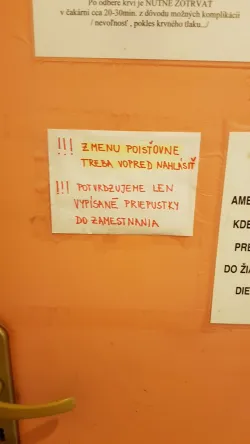 Po odbere krvi je NUTNÉ ZOTRVAŤ
v čakárni cca 20-30min. z dôvodu možných komplikácií
/ nevoľnosť , pokles krvného tlaku.../
!!! ZMENU POISŤOVNE
TREBA VOPRED NAHLÁSIŤ
!!! POTVRDZUJEME LEN
VYPÍSANÉ PRIEPUSTKY
DO ZAMESTNANIA
AME
KDE
PRE
DO ŽIA
DIE